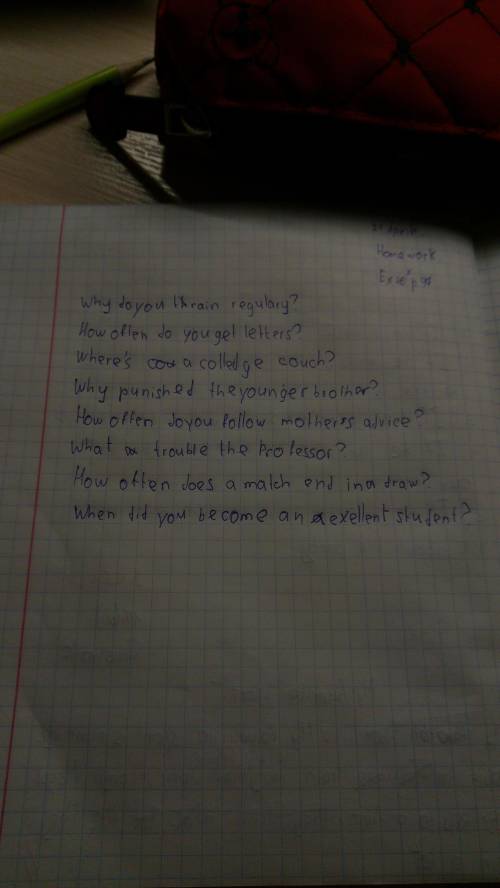 Homework
Why do you thrain regulary?
How often do you get letters?
Where's a colledge couch?
Why punished the younger brother?
How often do you follow mother's advice?
What trouble the Professor?
How often does a match end in a draw?
When did you become an exellent student?